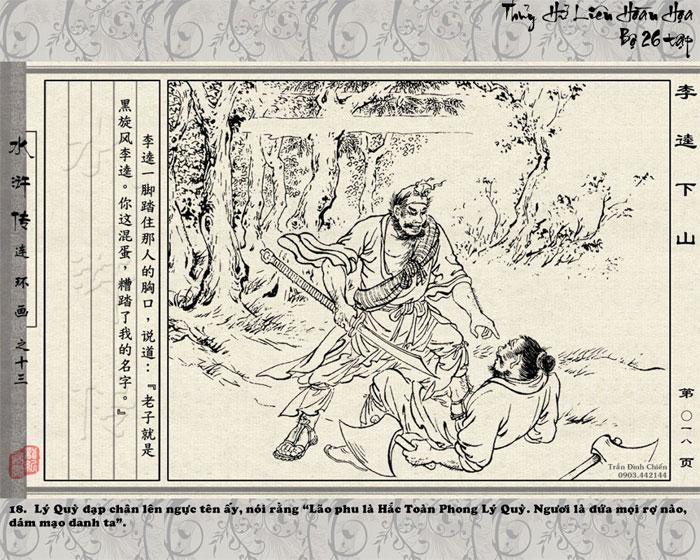 Thủy Hử Liên Hoàn Họa
Bộ 26 tập
李逵下山
第〇一八页
李逵一脚踏住那人的胸口，说道：『老子就是
黑旋风李逵。你这混蛋，糟踏了我的名字。』
水浒传连环画之十三
水浒传
Trần Đình Chiến
0903.442144
18. Lý Quỳ đạp chân lên ngực tên ấy, nói rằng “Lão phu là Hắc Toàn Phong Lý Quỳ. Ngươi là đứa mọi rợ nào,
dám mạo danh ta”.